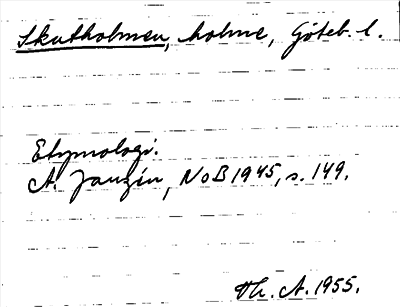 Skutholmen, holme, Göteb. l.
Etymologi.
A. Janzén, NoB 1945, s. 149.
Th. A. 1955.